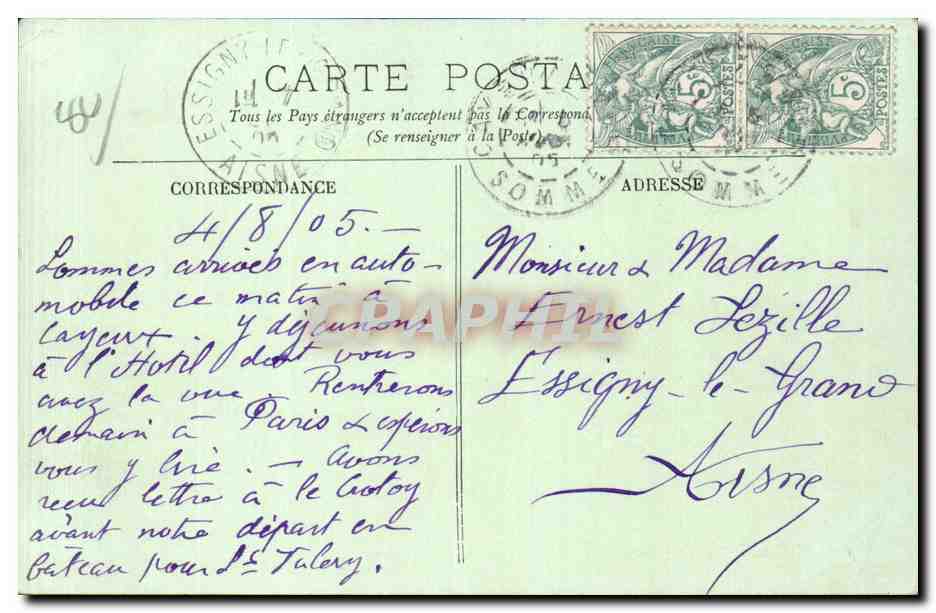 CARTE POSTA
Tous les Pays étrangers n'acceptent pas la Correspond
(Se renseigner à la Poste).
ESSIGNY LE G
AISNE
05
CAYEUX
05
SOMME
5c
POSTES
5c
POSTES
SOMME
CORRESPONDANCE
4/8/05. –
Sommes arrivés en auto-
mobile ce matin à
Cayeux. Y déjeunons
à l'Hotel dont vous
avez la vue. Rentrerons
demain à Paris & espérons
vous y lire. – Avons
reçu lettre à le Crotoy
avant notre départ en
bateau pour St Valery.
ADRESSE
Monsieur & Madame
Ernest Lézille
Essigny-le-Grand
Aisne
CPAPHIL